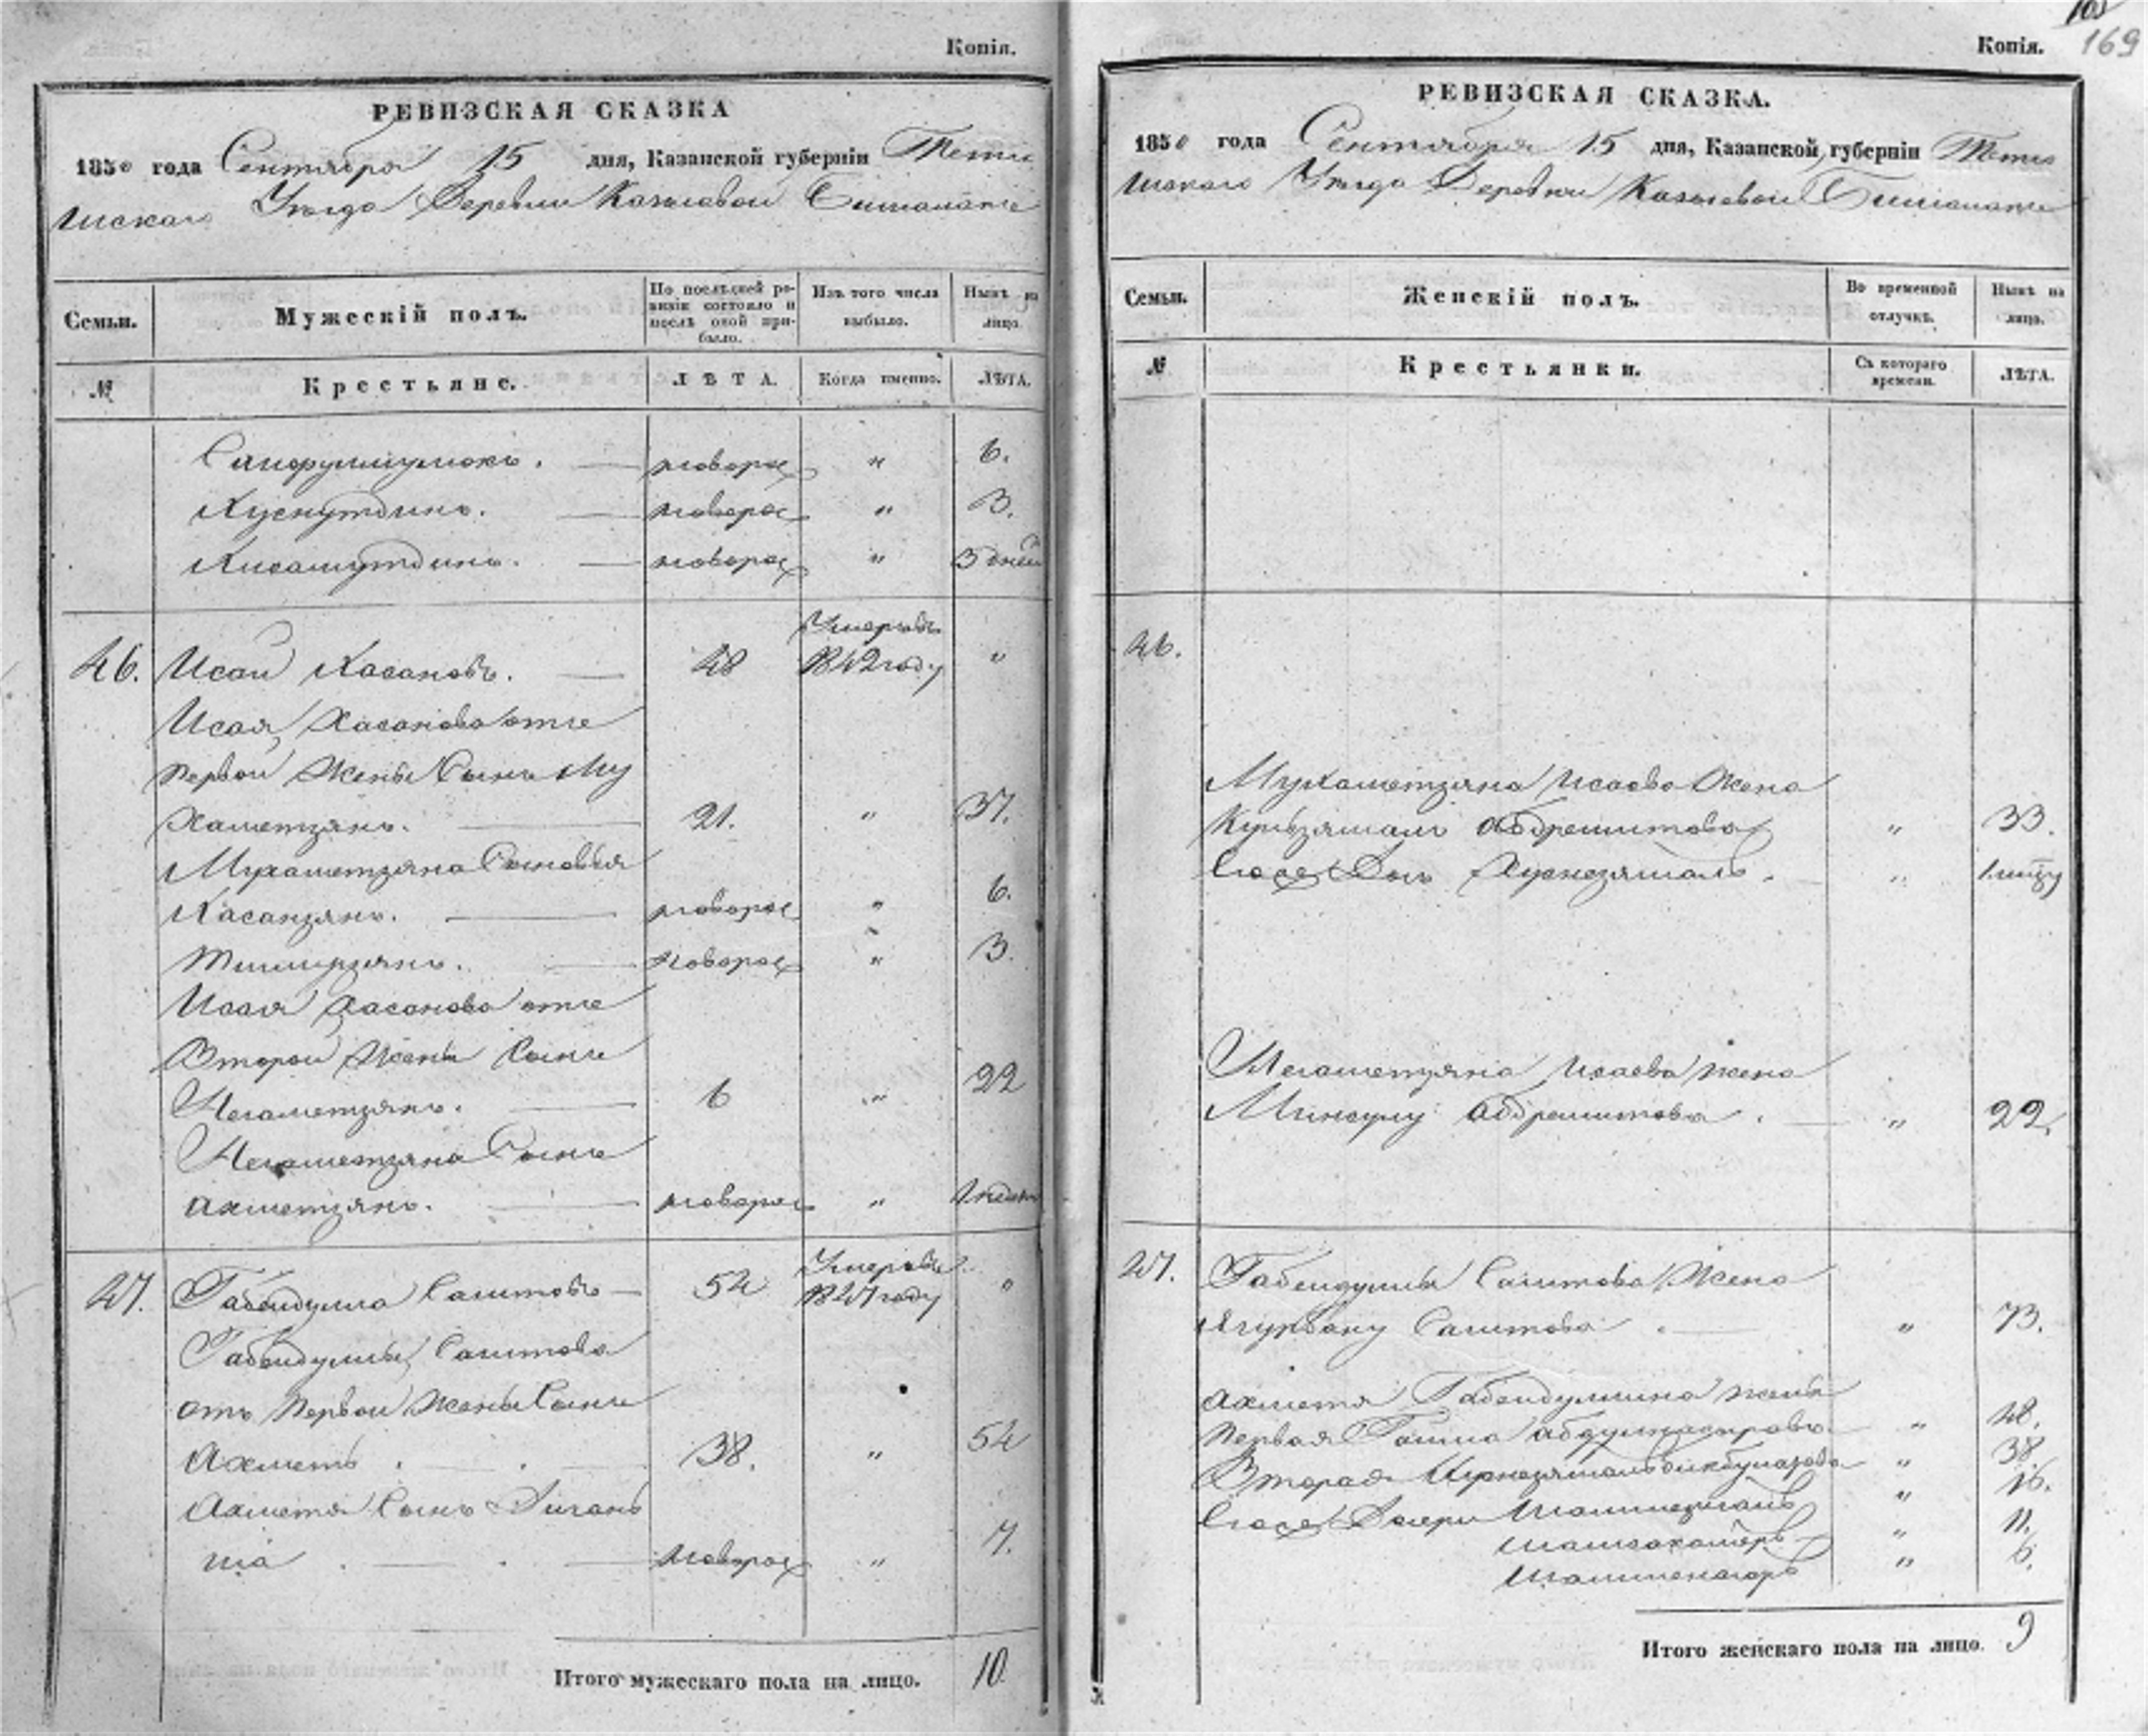 Копія.
РЕВИЗСКАЯ СКАЗКА
1850 года Сентября 15 дня, Казанской губерніи Тетю
шскаго Уѣзда Деревни
Семьи. Мужескій полъ. По послѣдней ре-
визіи состояло и
послѣ оной при-
было. Изъ того числа
выбыло. Нынѣ на
лицо.
№ Крестьяне. ЛѢТА. Когда именно. ЛѢТА.
новорож " 6.
Хуснутдинъ. новорож " 3.
Хисамутдинъ. новорож " 3 дней
Умеръ въ
46. Исай Хасановъ. 48 1842 году "
Исая Хасанова отъ
первой Жены Сынъ Му
хаметзянъ. 21. " 37.
Мухаметзяна Сыновья
Хасанзянъ. новорож " 6.
новорож " 3.
Исая Хасанова отъ
Второй Жены Сынъ
Негаметзянъ. 6 " 22
Негаметзяна Сынъ
Ахметзянъ. новорож "
Умеръ въ
47. Габейдулла Сагитовъ 54 1847 году "
Габейдуллы Сагитова
отъ первой Жены Сынъ
Ахметъ. 38. " 54
Ахметя Сынъ Диган
ша новорож " 7.
Итого мужескаго пола на лицо. 10.
169
Копія.
РЕВИЗСКАЯ СКАЗКА.
1850 года Сентября 15 дня, Казанской губерніи Тетю
шскаго Уѣзда Деревни
Семьи. Женскій полъ. Во временной
отлучкѣ. Нынѣ на
лицо.
№ Крестьянки. Съ котораго
времени. ЛѢТА.
46.
Мухаметзяна Исаева Жена
Абдрешитова " 33.
Дочь Хуснезямаль. "
Негаметзяна Исаева жена
Абдрешитова. " 22.
47. Габейдуллы Сагитова Жена
Сагитова " 73.
Ахметя Габейдуллина жены
первая " 48.
Вторая " 38
Дочери " 16.
" 11.
" 6.
Итого женскаго пола на лицо. 9